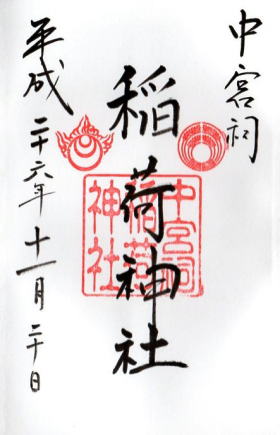 中宮祠
稲荷神社
中宮祠
稲荷
神社
平成二十六年十一月二十日